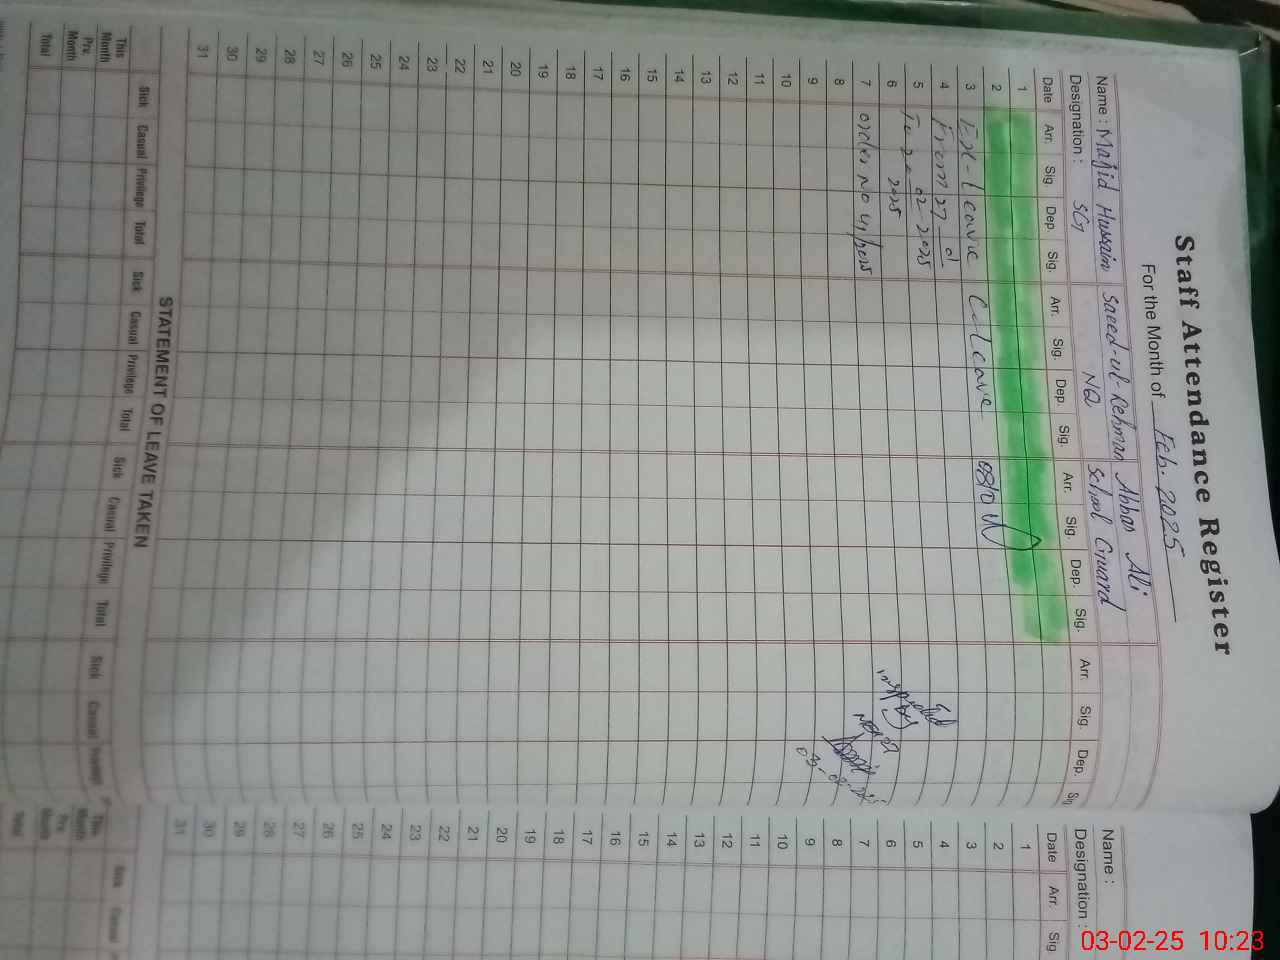 Staff Attendance Register
For the Month of Feb. 2025
Name : Majid Hussain Saeed-ul-Rehman Abbas Ali
Designation : SG NQ School Guard
Date Arr. Sig. Dep. Sig. Arr. Sig. Dep. Sig. Arr. Sig. Dep. Sig. Arr. Sig. Dep. Sig
1
2
3 Ex-Leave C-Leave
4 From 27-01
5 To 20-02-2025
6 2025
7 order No 41/2025
8
9
10
11
12
13
14
15
16
17
18
19
20
21
22
23
24
25
26
27
28
29
30
31
inspected
by
STATEMENT OF LEAVE TAKEN
Sick Casual Privilege Total Sick Casual Privilege Total Sick Casual Privilege Total Sick Casual
This Month
Prv. Month
Total
Name :
Designation :
Date Arr. Sig.
1
2
3
4
5
6
7
8
9
10
11
12
13
14
15
16
17
18
19
20
21
22
23
24
25
26
27
28
29
30
31
This Month
Prv. Month
Total
Sick Casual
03-02-25 10:23